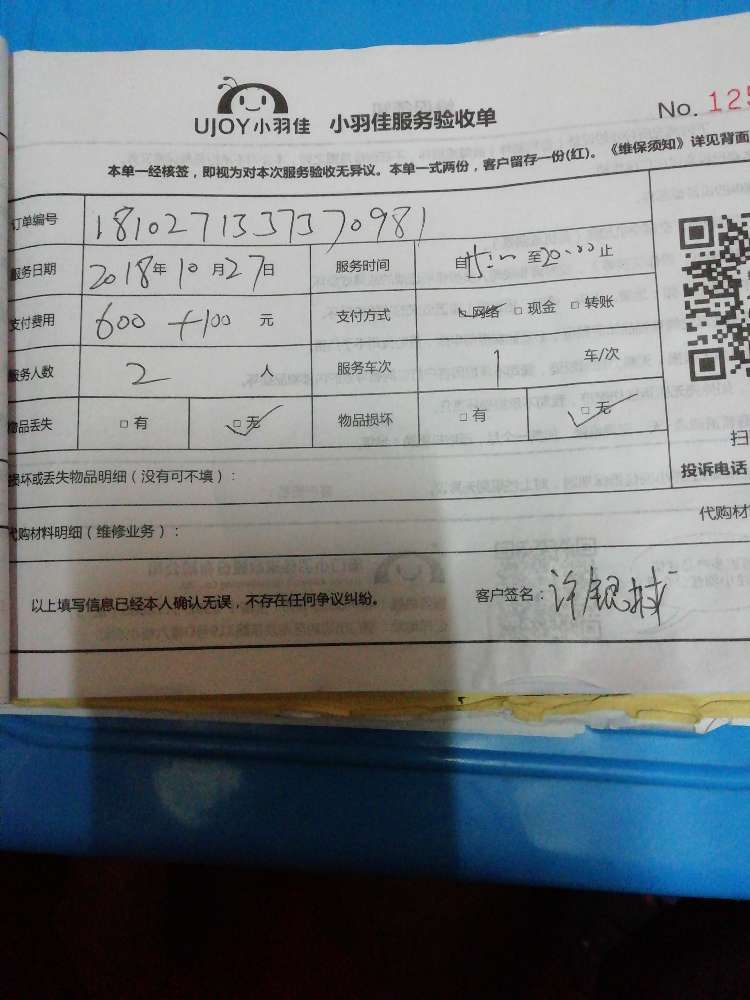 UJOY小羽佳 小羽佳服务验收单
No. 125
本单一经核签，即视为对本次服务验收无异议。本单一式两份，客户留存一份(红)。《维保须知》详见背面
订单编号 1810271337370981
服务日期 2018年10月27日 服务时间 自 至20:00止
支付费用 600+100 元 支付方式 □网络 □现金 □转账
服务人数 2 人 服务车次 1 车/次
物品丢失 □有 □无 物品损坏 □有 □无
损坏或丢失物品明细（没有可不填）：
扫
投诉电话
代购材料明细（维修业务）：
代购材
以上填写信息已经本人确认无误，不存在任何争议纠纷。 客户签名：许